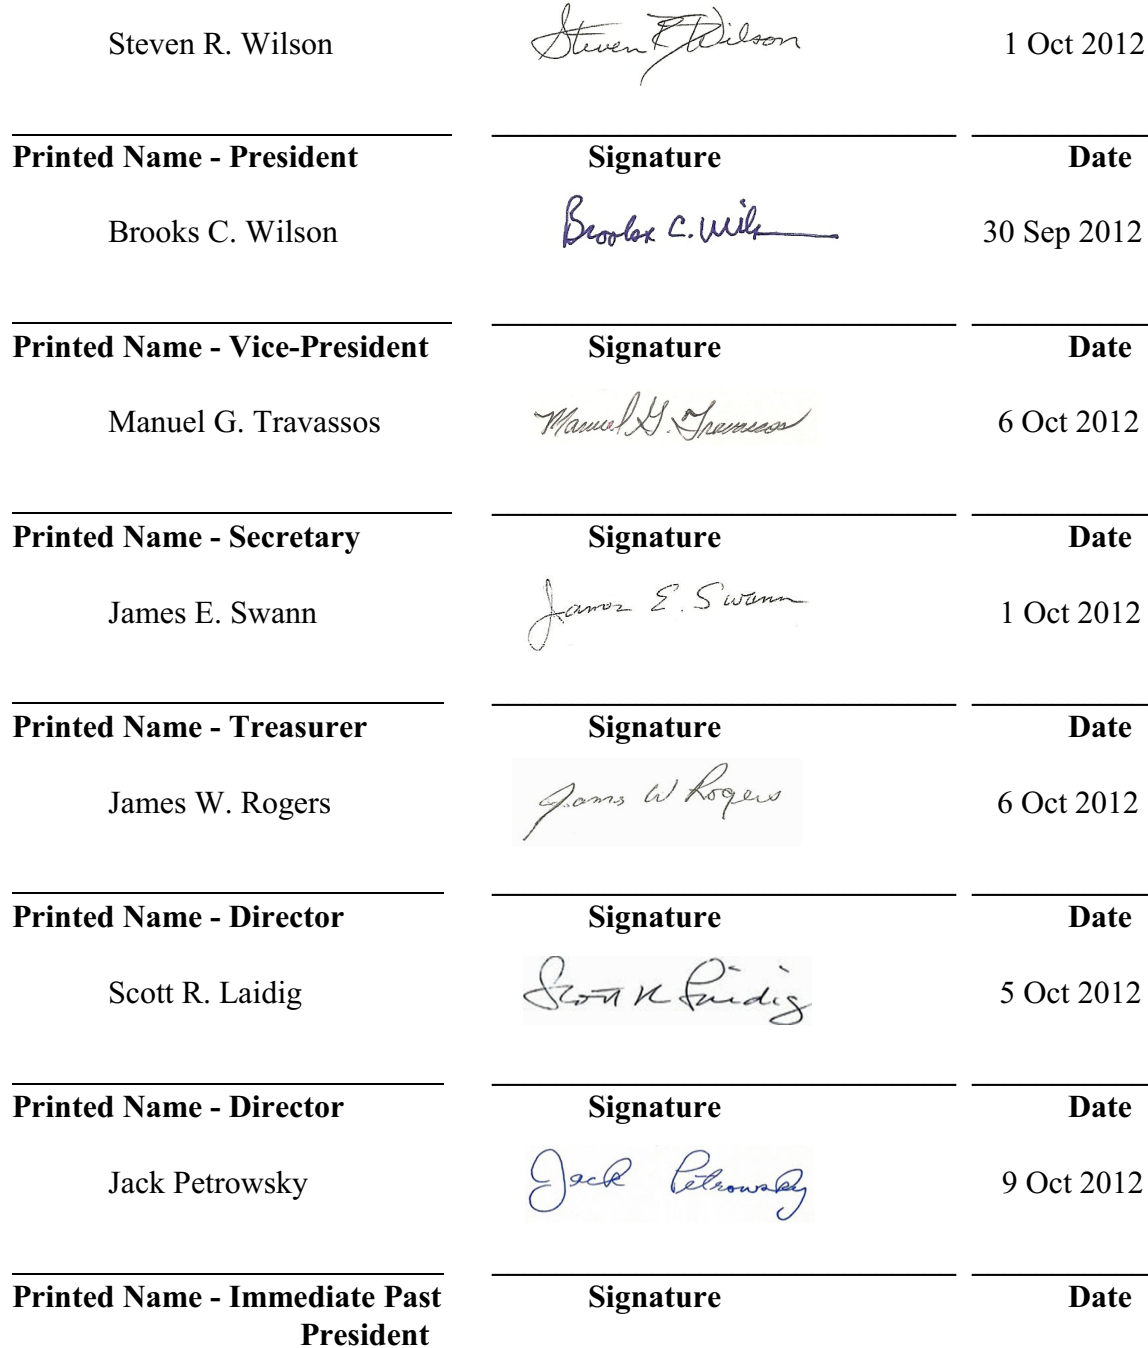 Steven R. Wilson Steven R Wilson 1 Oct 2012
Printed Name - President Signature Date
Brooks C. Wilson Brooks C. Wils 30 Sep 2012
Printed Name - Vice-President Signature Date
Manuel G. Travassos Manuel G. Travassos 6 Oct 2012
Printed Name - Secretary Signature Date
James E. Swann James E. Swann 1 Oct 2012
Printed Name - Treasurer Signature Date
James W. Rogers James W Rogers 6 Oct 2012
Printed Name - Director Signature Date
Scott R. Laidig Scott R Laidig 5 Oct 2012
Printed Name - Director Signature Date
Jack Petrowsky Jack Petrowsky 9 Oct 2012
Printed Name - Immediate Past Signature Date
President